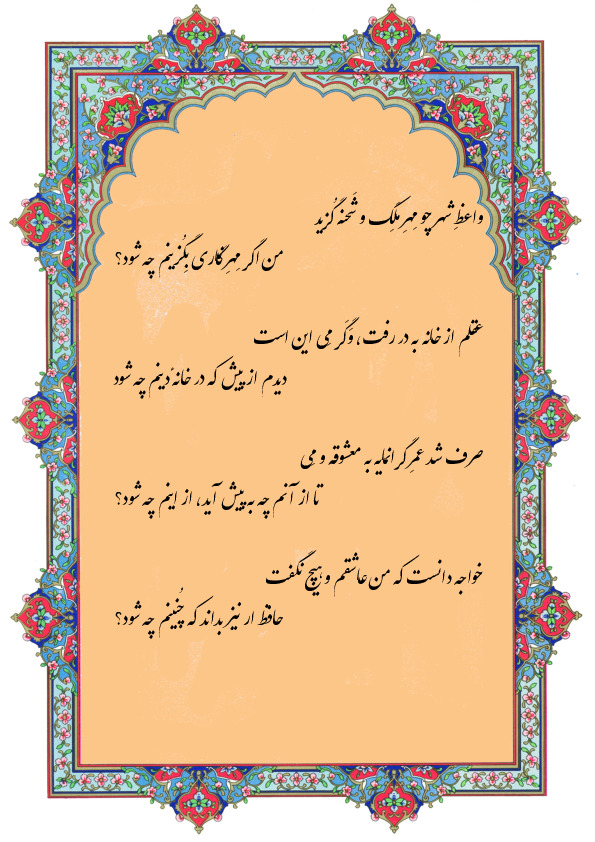 واعظِ شهر چو مِهرِ مَلِک و شَحنه گُزید
من اگر مِهرِ نگاری بِگُزینم چه شود؟
عقلم از خانه به در رفت، وَگَر مِی این است
دیدم از پیش که در خانهٔ دینم چه شود
صرف شد عمرِ گرانمایه به معشوقه و مِی
تا از آنم چه به پیش آید، از اینم چه شود؟
خواجه دانست که من عاشقم و هیچ نگفت
حافظ ار نیز بداند که چُنینم چه شود؟